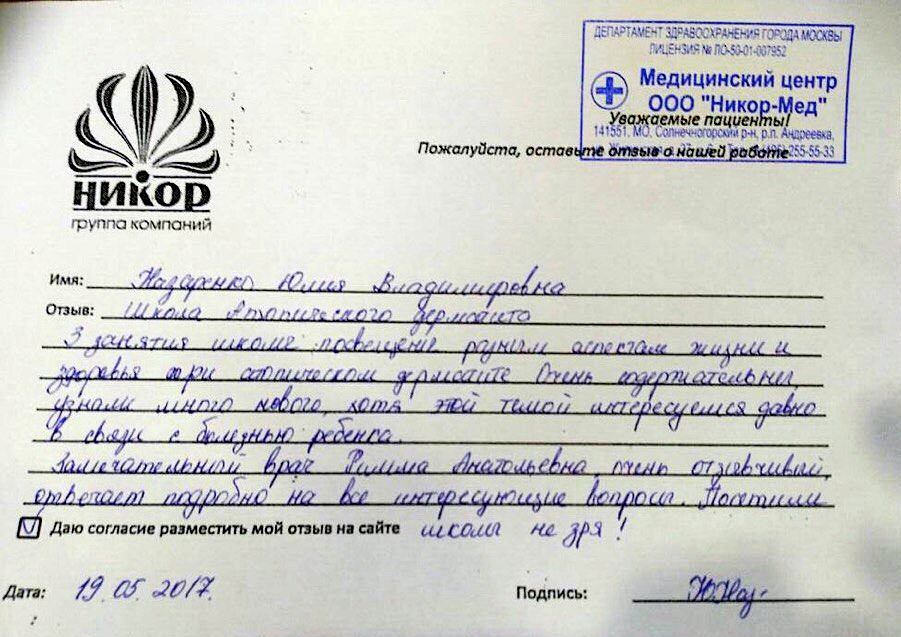 ДЕПАРТАМЕНТ ЗДРАВООХРАНЕНИЯ ГОРОДА МОСКВЫ
ЛИЦЕНЗИЯ № ЛО-50-01-007952
Медицинский центр
ООО "Никор-Мед"
Уважаемые пациенты!
141551, МО, Солнечногорский р-н, р.п. Андреевка,
255-55-33
Пожалуйста, оставьте отзыв о нашей работе
НИКОР
группа компаний
Имя: Назаренко Юлия Владимировна
Отзыв: Школа Атопического дерматита
3 занятия школы посвещены разным аспектам жизни и
здоровья при атопическом дерматите. Очень содержательны,
узнали много нового, хотя этой темой интересуемся давно
в связи с болезнью ребенка.
Замечательный врач Римма Анатольевна, очень отзывчивый,
отвечает подробно на все интересующие вопросы. Посетили
Даю согласие разместить мой отзыв на сайте школы не зря!
Дата: 19.05.2017. Подпись: ЮНаз-